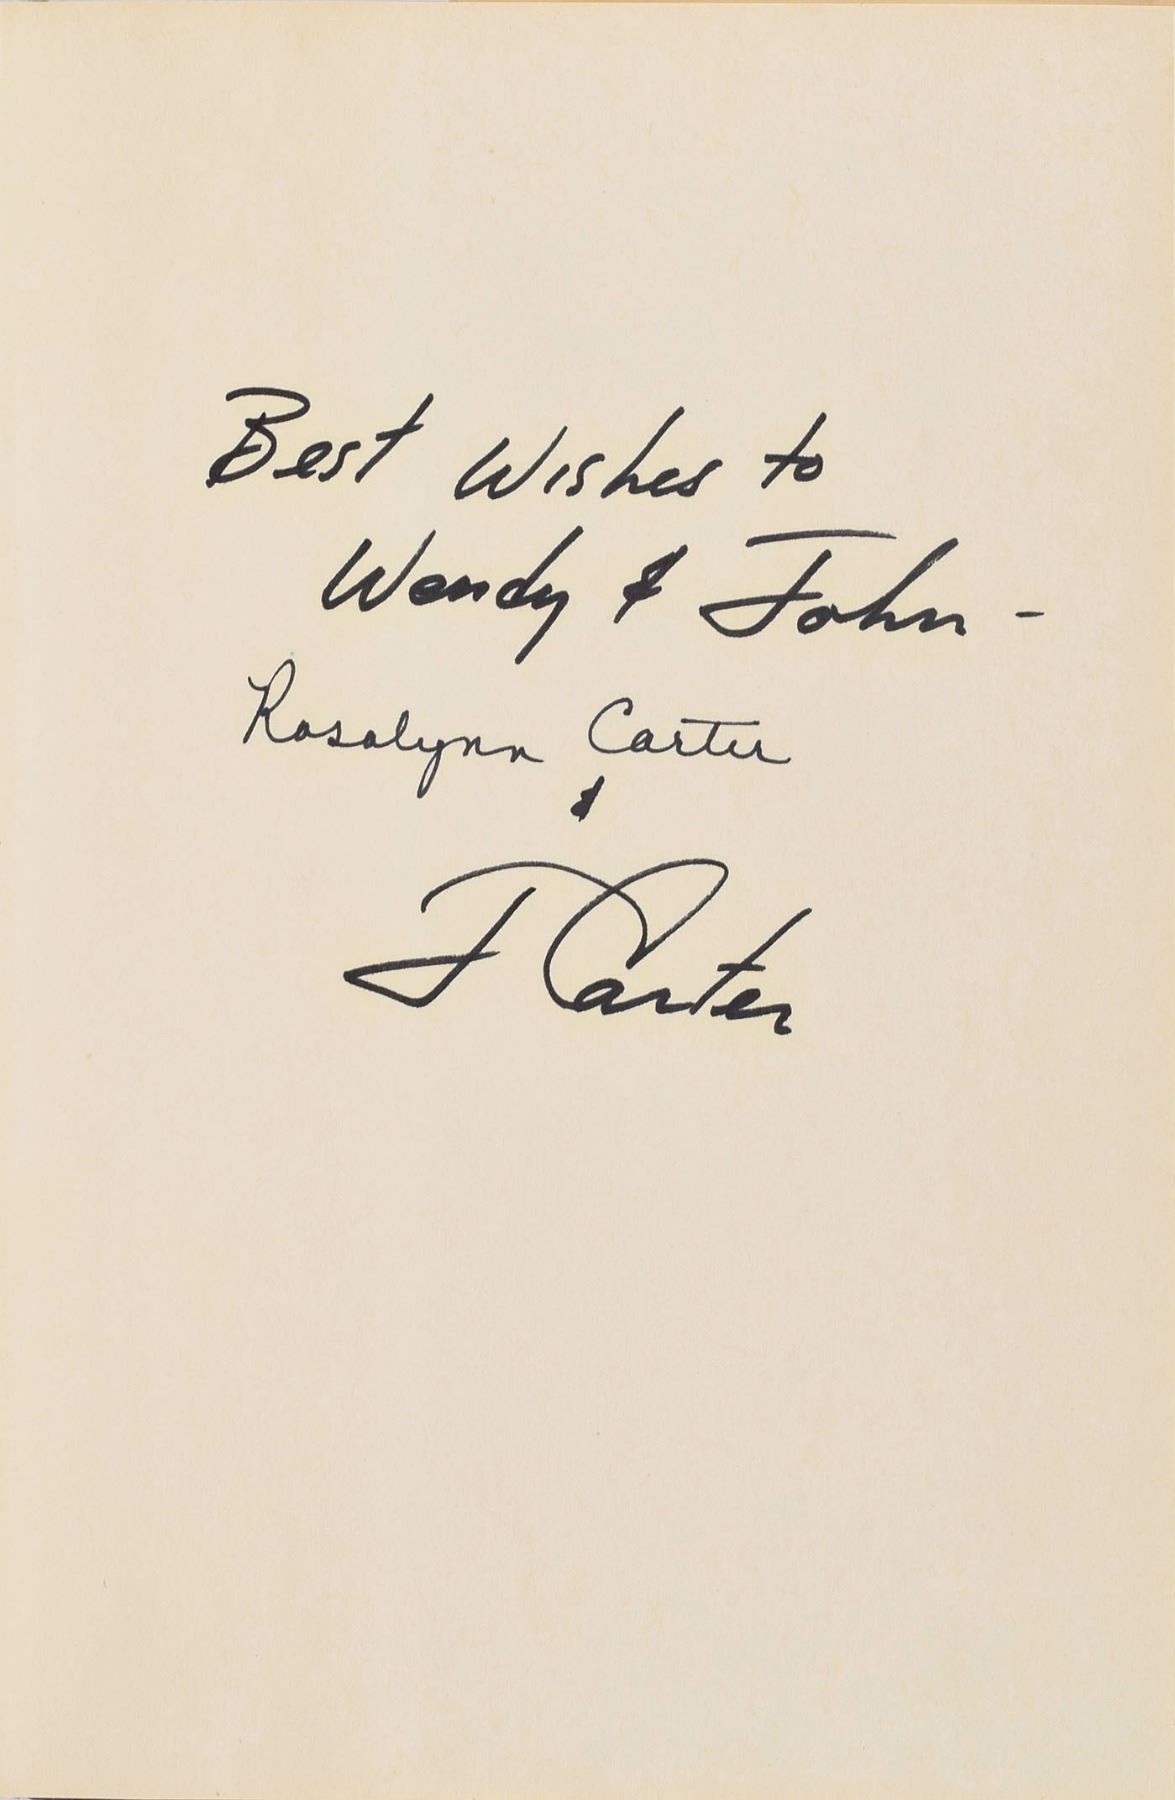 Best Wishes to
Wendy & John -
Rosalynn Carter
&
J Carter